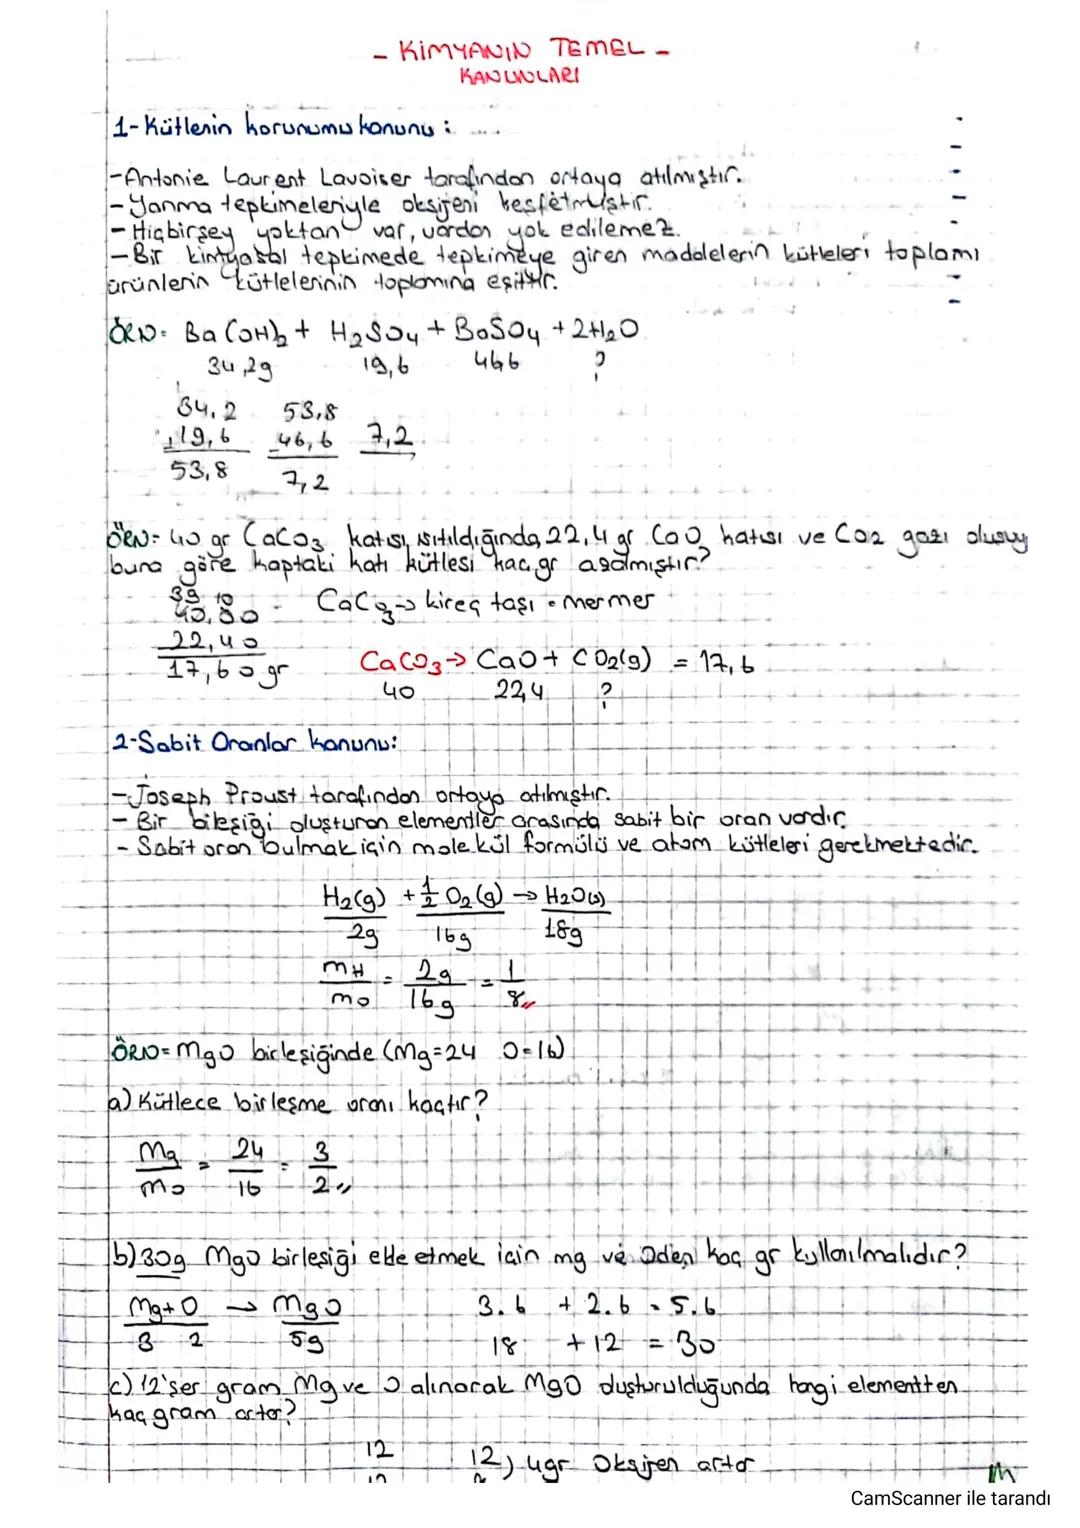 - KİMYANIN TEMEL -
KANUNLARI
1- Kütlenin korunumu kanunu :
- Antonie Laurent Lavoiser tarafından ortaya atılmıştır.
- Yanma tepkimeleriyle oksijeni keşfetmiştir.
- Hiçbirşey yoktan var, vardan yok edilemez.
- Bir kimyasal tepkimede tepkimeye giren maddelerin kütleleri toplamı
ürünlerin kütlelerinin toplamına eşittir.
ÖRN= Ba(OH)₂ + H₂SO₄ + BaSO₄ + 2H₂O
34,2g 19,6 466 ?
34,2 53,8
+19,6 -46,6 7,2
53,8 7,2
ÖRN= 40 gr CaCO₃ katısı ısıtıldığında 22,4 gr CaO katısı ve CO₂ gazı oluşuy
buna göre kaptaki katı kütlesi kaç gr azalmıştır?
39 10
40,00 CaCO₃ → kireç taşı = mermer
22,40
17,60 gr CaCO₃ → CaO + CO₂(g) = 17,6
40 22,4 ?
2-Sabit Oranlar kanunu:
- Joseph Proust tarafından ortaya atılmıştır.
- Bir bileşiği oluşturan elementler arasında sabit bir oran vardır.
- Sabit oran bulmak için molekül formülü ve atom kütleleri gerekmektedir.
H₂(g) + 1/2 O₂(g) → H₂O(s)
2g 16g 18g
mH/mO = 2g/16g = 1/8
ÖRN= MgO birleşiğinde (Mg=24 O=16)
a) Kütlece birleşme oranı kaçtır?
Mg/mO = 24/16 = 3/2
b) 30g MgO birleşiği elde etmek için mg ve Oden kaç gr kullanılmalıdır?
Mg + O → MgO 3.6 + 2.6 = 5.6
3 2 5g 18 + 12 = 30
c) 12'şer gram Mg ve O alınarak MgO oluşturulduğunda hangi elementten
kaç gram artar?
12 12) 4gr Oksijen artar
CamScanner ile tarandı